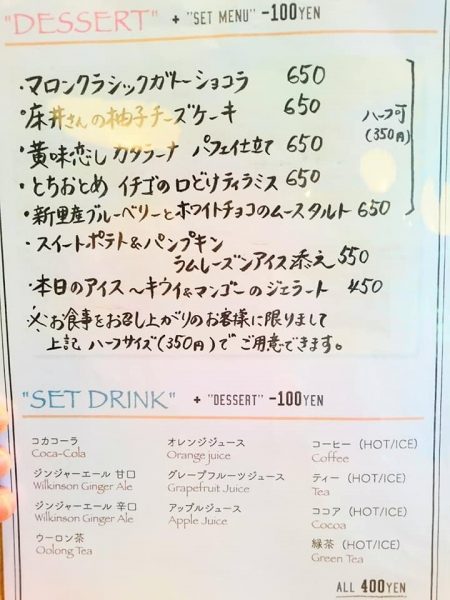 "DESSERT" + "SET MENU" -100YEN
・マロンクラシックガトーショコラ 650
・床井さんの柚子チーズケーキ 650
ハーフ可
(350円)
・黄味恋しカタラーナ パフェ仕立て 650
・とちおとめ イチゴの口どけティラミス 650
・新里産ブルーベリーとホワイトチョコのムースタルト 650
・スイートポテト&パンプキン
ラムレーズンアイス添え 550
・本日のアイス 〜キウイ&マンゴーのジェラート 450
※お食事をお召し上がりのお客様に限りまして
上記 ハーフサイズ(350円)でご用意できます。
"SET DRINK" + "DESSERT" -100YEN
コカコーラ オレンジジュース コーヒー (HOT/ICE)
Coca-Cola Orange juice Coffee
ジンジャーエール 甘口 グレープフルーツジュース ティー (HOT/ICE)
Wilkinson Ginger Ale Grapefruit Juice Tea
ジンジャーエール 辛口 アップルジュース ココア (HOT/ICE)
Wilkinson Ginger Ale Apple Juice Cocoa
ウーロン茶 緑茶 (HOT/ICE)
Oolong Tea Green Tea
ALL 400YEN